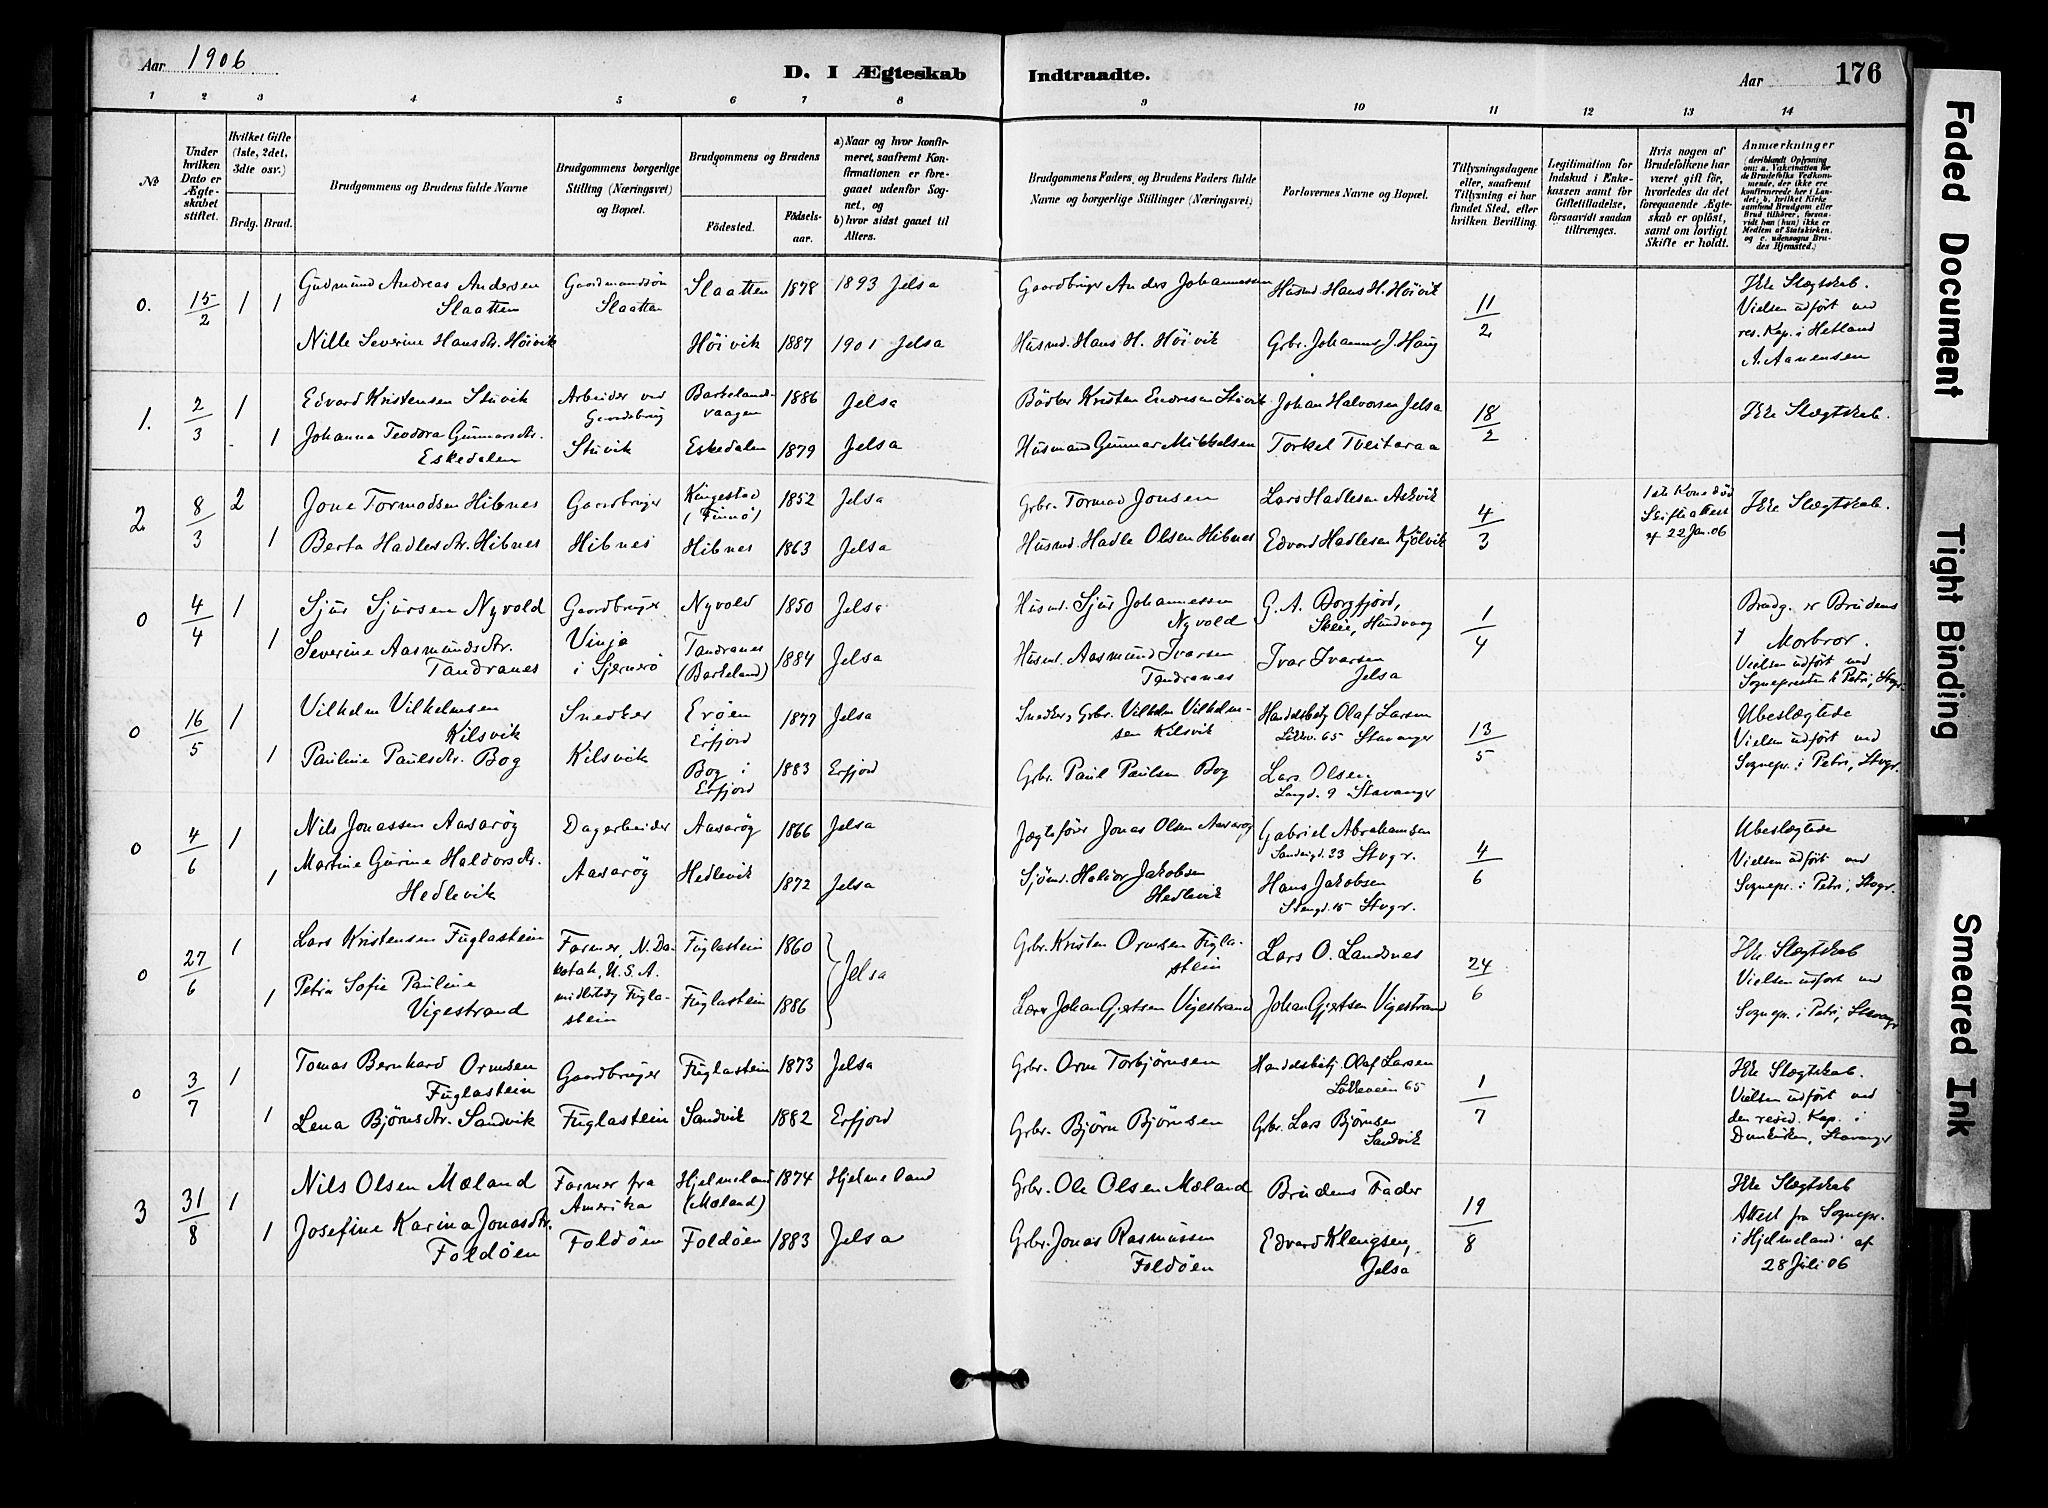 Aar 1906
D. I Ægteskab Indtraadte.
Aar 176
1 2 3 4 5 6 7 8 9 10 11 12 13 14
№
Under hvilken Dato er Ægteskabet stiftet.
Hvilket Gifte (1ste, 2det, 3die osv.)
Brdg. Brud.
Brudgommens og Brudens fulde Navne
Brudgommens borgerlige Stilling (Næringsvei) og Bopæl.
Brudgommens og Brudens
Fødested.
Fødselsaar.
a) Naar og hvor konfirmeret, saafremt Konfirmationen er foregaaet udenfor Sognet, og
b) hvor sidst gaaet til Alters.
Brudgommens Faders, og Brudens Faders fulde Navne og borgerlige Stillinger (Næringsvei)
Forlovernes Navne og Bopæl.
Tillysningsdagene eller, saafremt Tillysning ei har fundet Sted, efter hvilken Bevilling.
Legitimation for Indskud i Enkekassen samt for Giftetilladelse, forsaavidt saadan tiltrænges.
Hvis nogen af Brudefolkene har været gift før, hvorledes da det foregaaende Ægteskab er opløst, samt om lovligt Skifte er holdt.
Anmærkninger
(deriblandt Oplysning om: a. Vakcination for de Brudefolks Vedkommende, der ikke ere konfirmerede her i Landet; b. hvilket Kirkesamfund Brudgom eller Brud tilhører, forsaavidt han (hun) ikke er Medlem af Statskirken, og c. udensogns Brudes Hjemsted.)
0. 15/2 1 1 Gudmund Andreas Andersen Slaatten
Gaardmandssøn Slaatten
Slaatten 1878 1893 Jelsa
Gaardbruger Anders Johannessen
Husmd. Hans H. Höivik
11/2
Ikke Slægtskab.
Vielsen udført ved
res. Kap. i Hetland
A. Aanensen
Nille Severine Hansdtr. Höivik
Höivik 1887 1901 Jelsa
Husmd. Hans H. Höivik
Grbr. Johannes J. Haug
1. 2/3 1 Edvard Kristensen Stuvik
Arbeider ved Gaardsbrug
Barkelandsvaagen 1886 Jelsa
Bödker Kristen Endresen Stuvik
Johan Halvorsen Jelsa
18/2
Ikke Slægtskab.
1 Johanna Teodora Gunnarsdtr. Eskedalen
Stuvik
Eskedalen 1879 Jelsa
Husmand Gunnar Mikkelsen
Torkel Tveitaraa
2 8/3 2 Jone Tormodsen Hibnes
Gaardbruger
Kingestad (Finnø) 1852 Jelsa
Grbr. Tormod Jonsen
Lars Hadlesen Askvik
4/3
1ste Kone død
Skifteattest
af 22 Jan. 06
Ikke Slægtskab.
1 Berta Hadlesdtr. Hibnes
Hibnes Hibnes 1863 Jelsa
Husmd. Hadle Olsen Hibnes
Edvard Hadlesen Kjölvik
0 4/4 1 Sjur Sjursen Nyvold
Gaardbruger Nyvold 1850 Jelsa
Husmd. Sjur Johannessen Nyvold
G. A. Borgfjord, Skeie, Hundvaag
1/4
Brudg. er Brudens
Morbror.
Vielsen udført ved
Sognepresten t. Petri, Stvgr.
1 Severine Aasmundsdtr. Tandranes
Vinja i Sjernerö
Tandranes (Barkeland) 1884 Jelsa
Husmd. Aasmund Ivarsen Tandranes
Ivar Ivarsen Jelsa
0 16/5 1 Vilhelm Vilhelmsen Kilsvik
Snedker
Eröen Erfjord 1877 Jelsa
Snedker, Grbr. Vilhelm Vilhelmsen Kilsvik
Handelsbetj. Olaf Larsen
Lökkev. 65 Stavanger
13/5
Ubeslægtede
Vielsen udført ved
Sognepr. i Petri, Stvgr.
1 Pauline Paulsdtr. Bog
Kilsvik
Bog i Erfjord 1883 Erfjord
Grbr. Paul Paulsen Bog
Lars Olsen
Langd. 9 Stavanger
0 4/6 1 Nils Jonassen Aasaröy
Dagarbeider Aasaröy 1866 Jelsa
Jægtefører Jonas Olsen Aasaröy
Gabriel Abrahamsen
Sandeigd. 23 Stvgr.
4/6
Ubeslægtede
Vielsen udført ved
Sognepr. i Petri, Stvgr.
1 Martine Gurine Haldorsdtr. Hedlevik
Aasaröy Hedlevik 1872 Jelsa
Sjömd. Haldor Jakobsen Hedlevik
Hans Jakobsen
Stengd. 15 Stvgr.
0 27/6 1 Lars Kristensen Fuglastein
Farmer, N. Dakotah, U.S.A. midlertidig Fuglastein
Fuglastein 1860 Jelsa
Grbr. Kristen Ormsen Fuglastein
Lars O. Landsnes
24/6
Ikke Slægtskab
Vielsen udført ved
Sognepr. i Petri, Stavangr
1 Petra Sofie Pauline Vigestrand
Fuglastein 1886
Lærer Johan Gjertsen Vigestrand
Johan Gjertsen Vigestrand
0 3/7 1 Tomas Bernhard Ormsen Fuglastein
Gaardbruger Fuglastein 1873 Jelsa
Grbr. Orm Torbjörnsen
Handelsbetj. Olaf Larsen
Lökkeveien 65
1/7
Ikke Slægtskab.
Vielsen udført ved
den resid. Kap. i
Domkirken, Stavanger
1 Lena Björnsdtr. Sandvik
Fuglastein Sandvik 1882 Erfjord
Grbr. Björn Björnsen
Grbr. Lars Björnsen Sandvik
3 31/8 1 Nils Olsen Mæland
Farmer fra Amerika
Hjelmeland (Mæland) 1874 Hjelmeland
Grbr. Ole Olsen Mæland
Brudens Fader
19/8
Ikke Slægtskab
Attest fra Sognepr.
i Hjelmeland af
28 Juli 06
1 Josefine Karina Jonasdtr. Foldöen
Foldöen Foldöen 1883 Jelsa
Grbr. Jonas Rasmussen Foldöen
Edvard Klengsen, Jelsa
Faded Document
Tight Binding
Smeared Ink